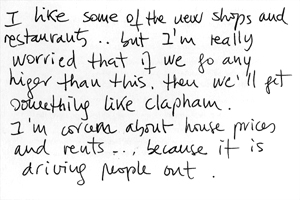 I like some of the new shops and
restaurants .. but I'm really
worried that if we go any
higer than this, then we'll get
something like clapham.
I'm concerns about house prices
and rents ... because it is
driving people out.